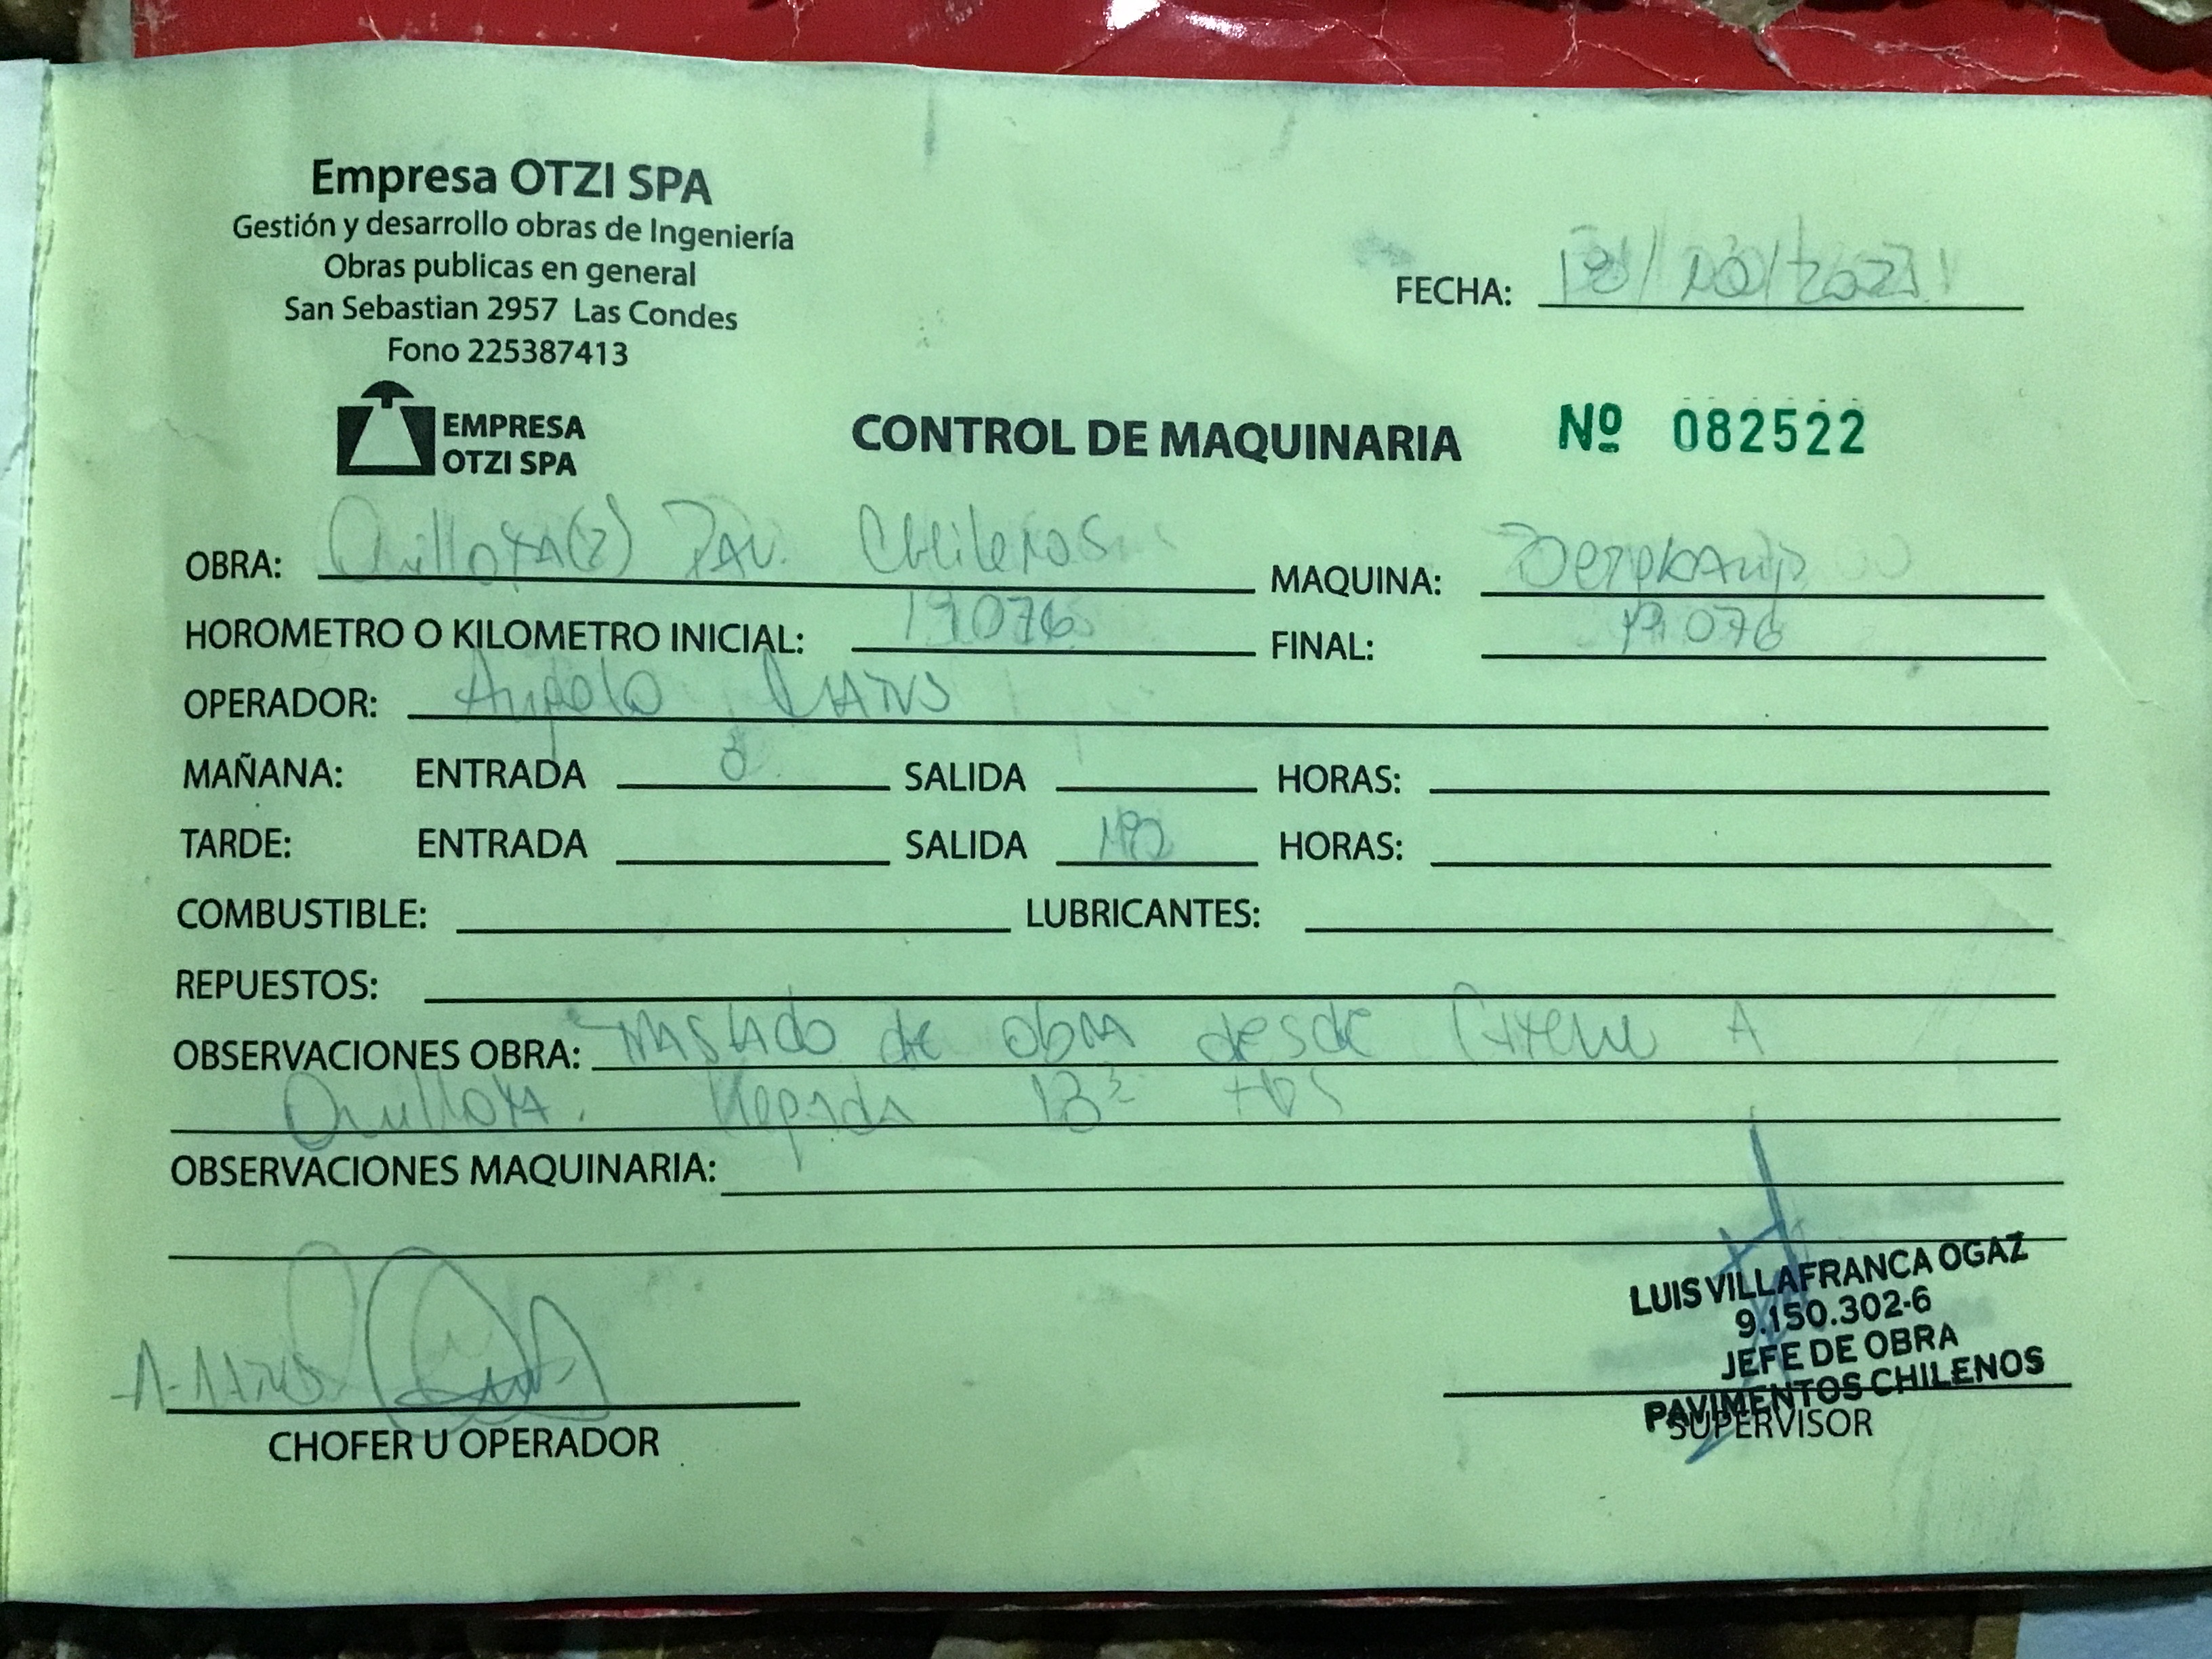 Empresa OTZI SPA
Gestión y desarrollo obras de Ingeniería
Obras publicas en general
San Sebastian 2957 Las Condes
Fono 225387413
FECHA:
EMPRESA
OTZI SPA
CONTROL DE MAQUINARIA Nº 082522
OBRA: Quillota(2) Pav. Chilenos MAQUINA:
HOROMETRO O KILOMETRO INICIAL: 19076 FINAL: 19.076
OPERADOR: Angelo
MAÑANA: ENTRADA 8 SALIDA HORAS:
TARDE: ENTRADA SALIDA HORAS:
COMBUSTIBLE: LUBRICANTES:
REPUESTOS:
OBSERVACIONES OBRA: Traslado de obra desde A
Quillota. llegada hrs
OBSERVACIONES MAQUINARIA:
LUIS VILLAFRANCA OGAZ
9.150.302-6
JEFE DE OBRA
PAVIMENTOS CHILENOS
CHOFER U OPERADOR SUPERVISOR